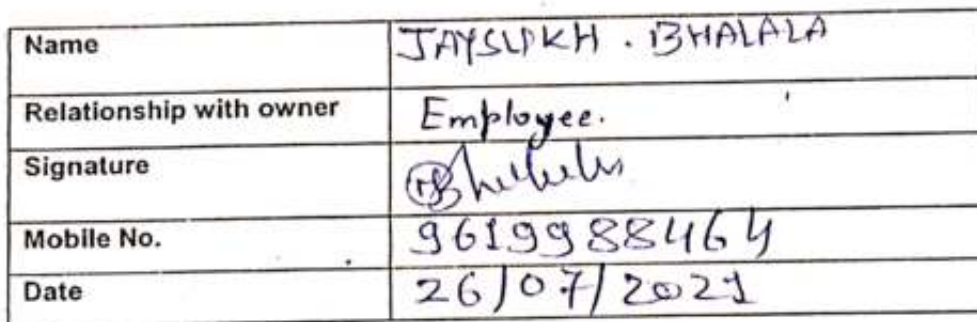 Name JAYSUKH . BHALALA
Relationship with owner Employee.
Signature
Mobile No. 9619988464
Date 26/07/2021